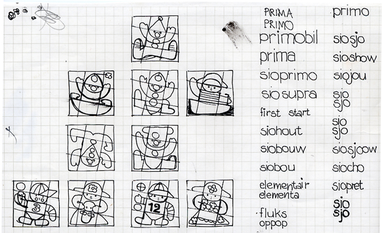 PRIMA
PRIMO
primobil
prima
sioprimo
siosupra
first start
siohout
siobouw
siobou
elementair
elementa
fluks
oppop
primo
siosjo
sioshow
siojou
sio
sjo
sio
sjo
siosjoow
siocho
siopret
sio
sjo
12